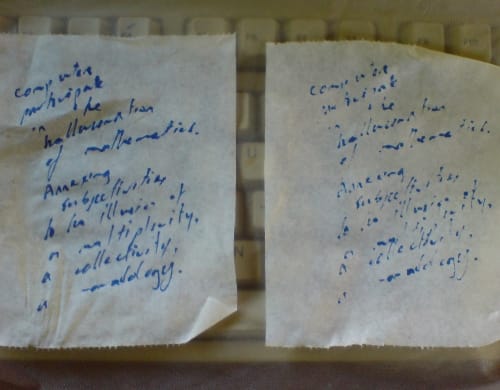 computer
participate
in the
hallucination
of mathematics.
Annexing
subjectivities
to an illusion of
a multiplicity.
a collectivity.
a monadology.
computer
participate
in the
hallucination
of mathematics.
Annexing
subjectivities
to an illusion of
a multiplicity.
a collectivity.
a monadology.